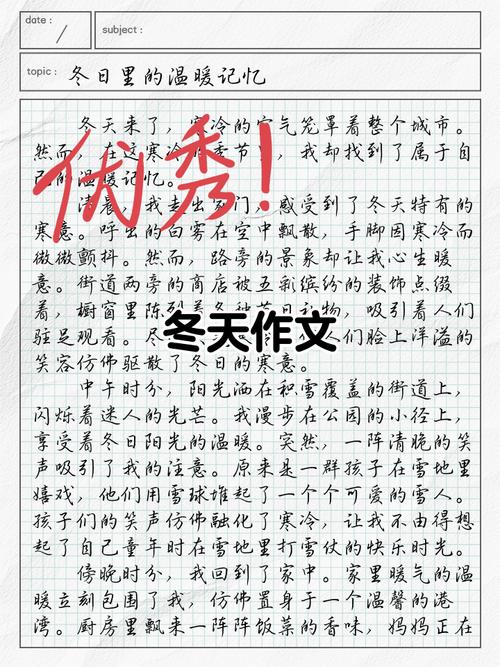 date :
subject :
topic : 冬日里的温暖记忆
冬天来了，寒冷的空气笼罩着整个城市。
然而 在这寒冷的季节 ，我却找到了属于自
己的温暖记忆。
清晨 我走出家门 感受到了冬天特有的
寒意。呼出的白雾在空中飘散，手脚因寒冷而
微微颤抖。然而，路旁的景象却让我心生暖
意。街道两旁的商店被五彩缤纷的装饰点缀
着，橱窗里陈列着各种节日礼物，吸引着人们
驻足观看。尽 人们脸上洋溢的
笑容仿佛驱散了冬日的寒意。
中午时分，阳光洒在积雪覆盖的街道上，
闪烁着迷人的光芒。我漫步在公园的小径上，
享受着冬日阳光的温暖。突然，一阵清脆的笑
声吸引了我的注意。原来是一群孩子在雪地里
嬉戏，他们用雪球堆起了一个个可爱的雪人。
孩子们的笑声仿佛融化了寒冷，让我不由得想
起了自己童年时在雪地里打雪仗的快乐时光。
傍晚时分，我回到了家中。家里暖气的温
暖立刻包围了我，仿佛置身于一个温馨的港
湾。厨房里飘来一阵阵饭菜的香味，妈妈正在
优秀！
冬天作文